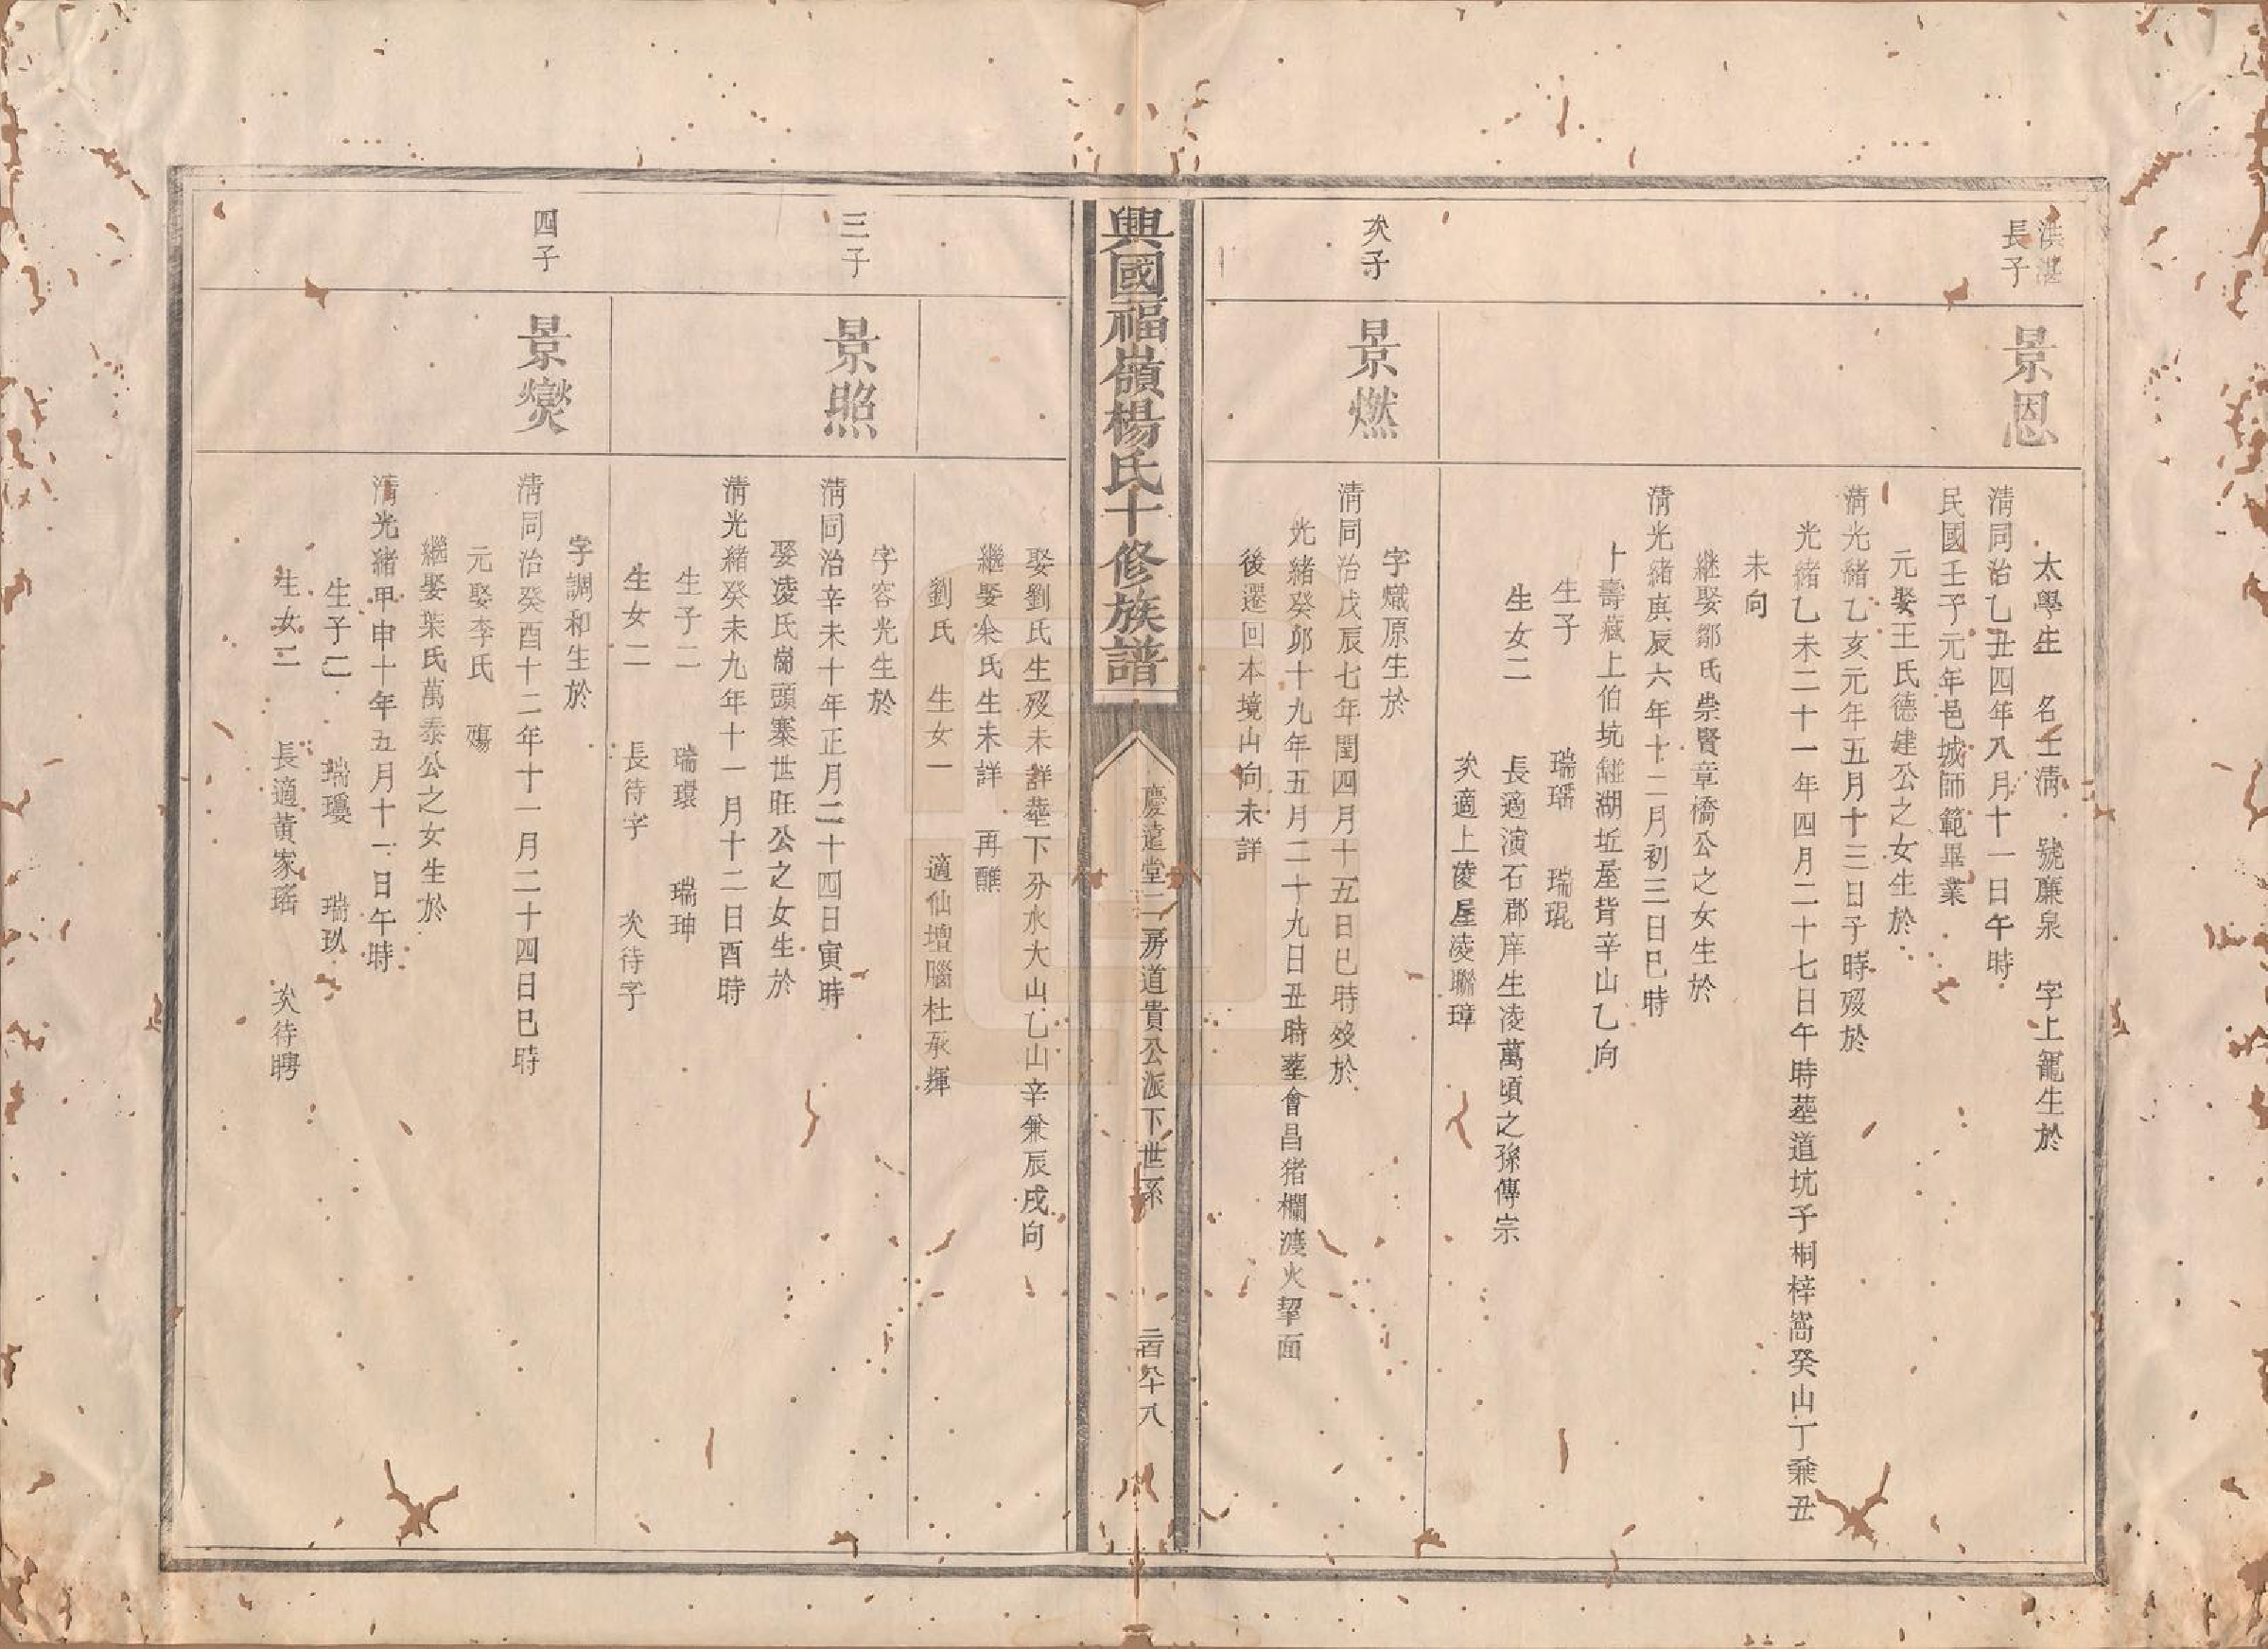 洪湛
長子
景恩
太學生　名士清　號廉泉　字上寵生於
清同治乙丑四年八月十一日午時
民國壬子元年邑城師範畢業
元娶王氏德建公之女生於
清光緒乙亥元年五月十三日子時歿於
光緒乙未二十一年四月二十七日午時塟道坑子桐梓窩癸山丁兼丑
未向
繼娶鄒氏崇賢章橋公之女生於
清光緒庚辰六年十二月初三日巳時
卜壽藏上伯坑湖坵屋背辛山乙向
生子　瑞璠　瑞琨
生女二　長適演石郡庠生凌萬頃之孫傳宗
次適上陵屋凌聯璋
次子
景燃
字熾原生於
清同治戊辰七年閏四月十五日巳時歿於
光緒癸卯十九年五月二十九日丑時塟會昌猪欄渡火挐面
後遷回本境山向未詳
興國福嶺楊氏十修族譜
慶遠堂二房道貴公派下世系
二百八十八
娶劉氏生歿未詳塟下分水大山乙山辛兼辰戌向
繼娶籴氏生未詳　再醮
劉氏　生女一　適仙壇腦杜承輝
三子
景照
字容光生於
清同治辛未十年正月二十四日寅時
娶凌氏崗頭寨世旺公之女生於
清光緒癸未九年十一月十二日酉時
生子二　瑞環　瑞珅
生女二　長待字　次待字
四子
景爕
字調和生於
清同治癸酉十二年十一月二十四日巳時
元娶李氏　殤
繼娶葉氏萬泰公之女生於
清光緒甲申十年五月十一日午時
生子二　瑞瓊　瑞玖
生女二　長適黃家瑤　次待聘